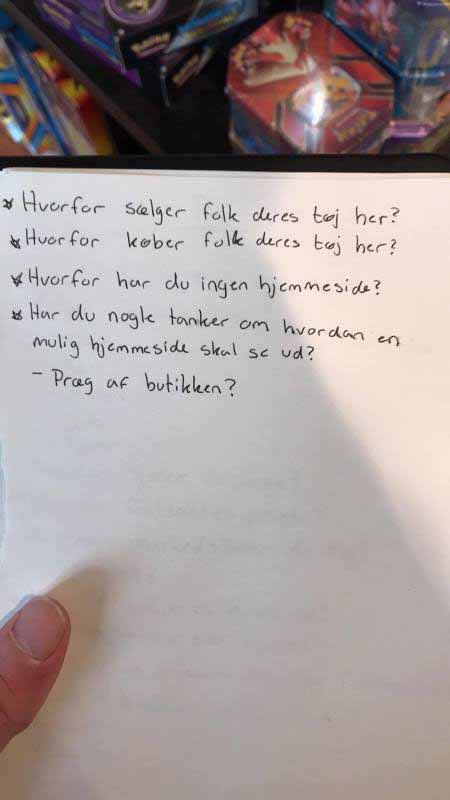 * Hvorfor sælger folk deres tøj her?
* Hvorfor køber folk deres tøj her?
* Hvorfor har du ingen hjemmeside?
* Har du nogle tanker om hvordan en
mulig hjemmeside skal se ud?
- Præg af butikken?